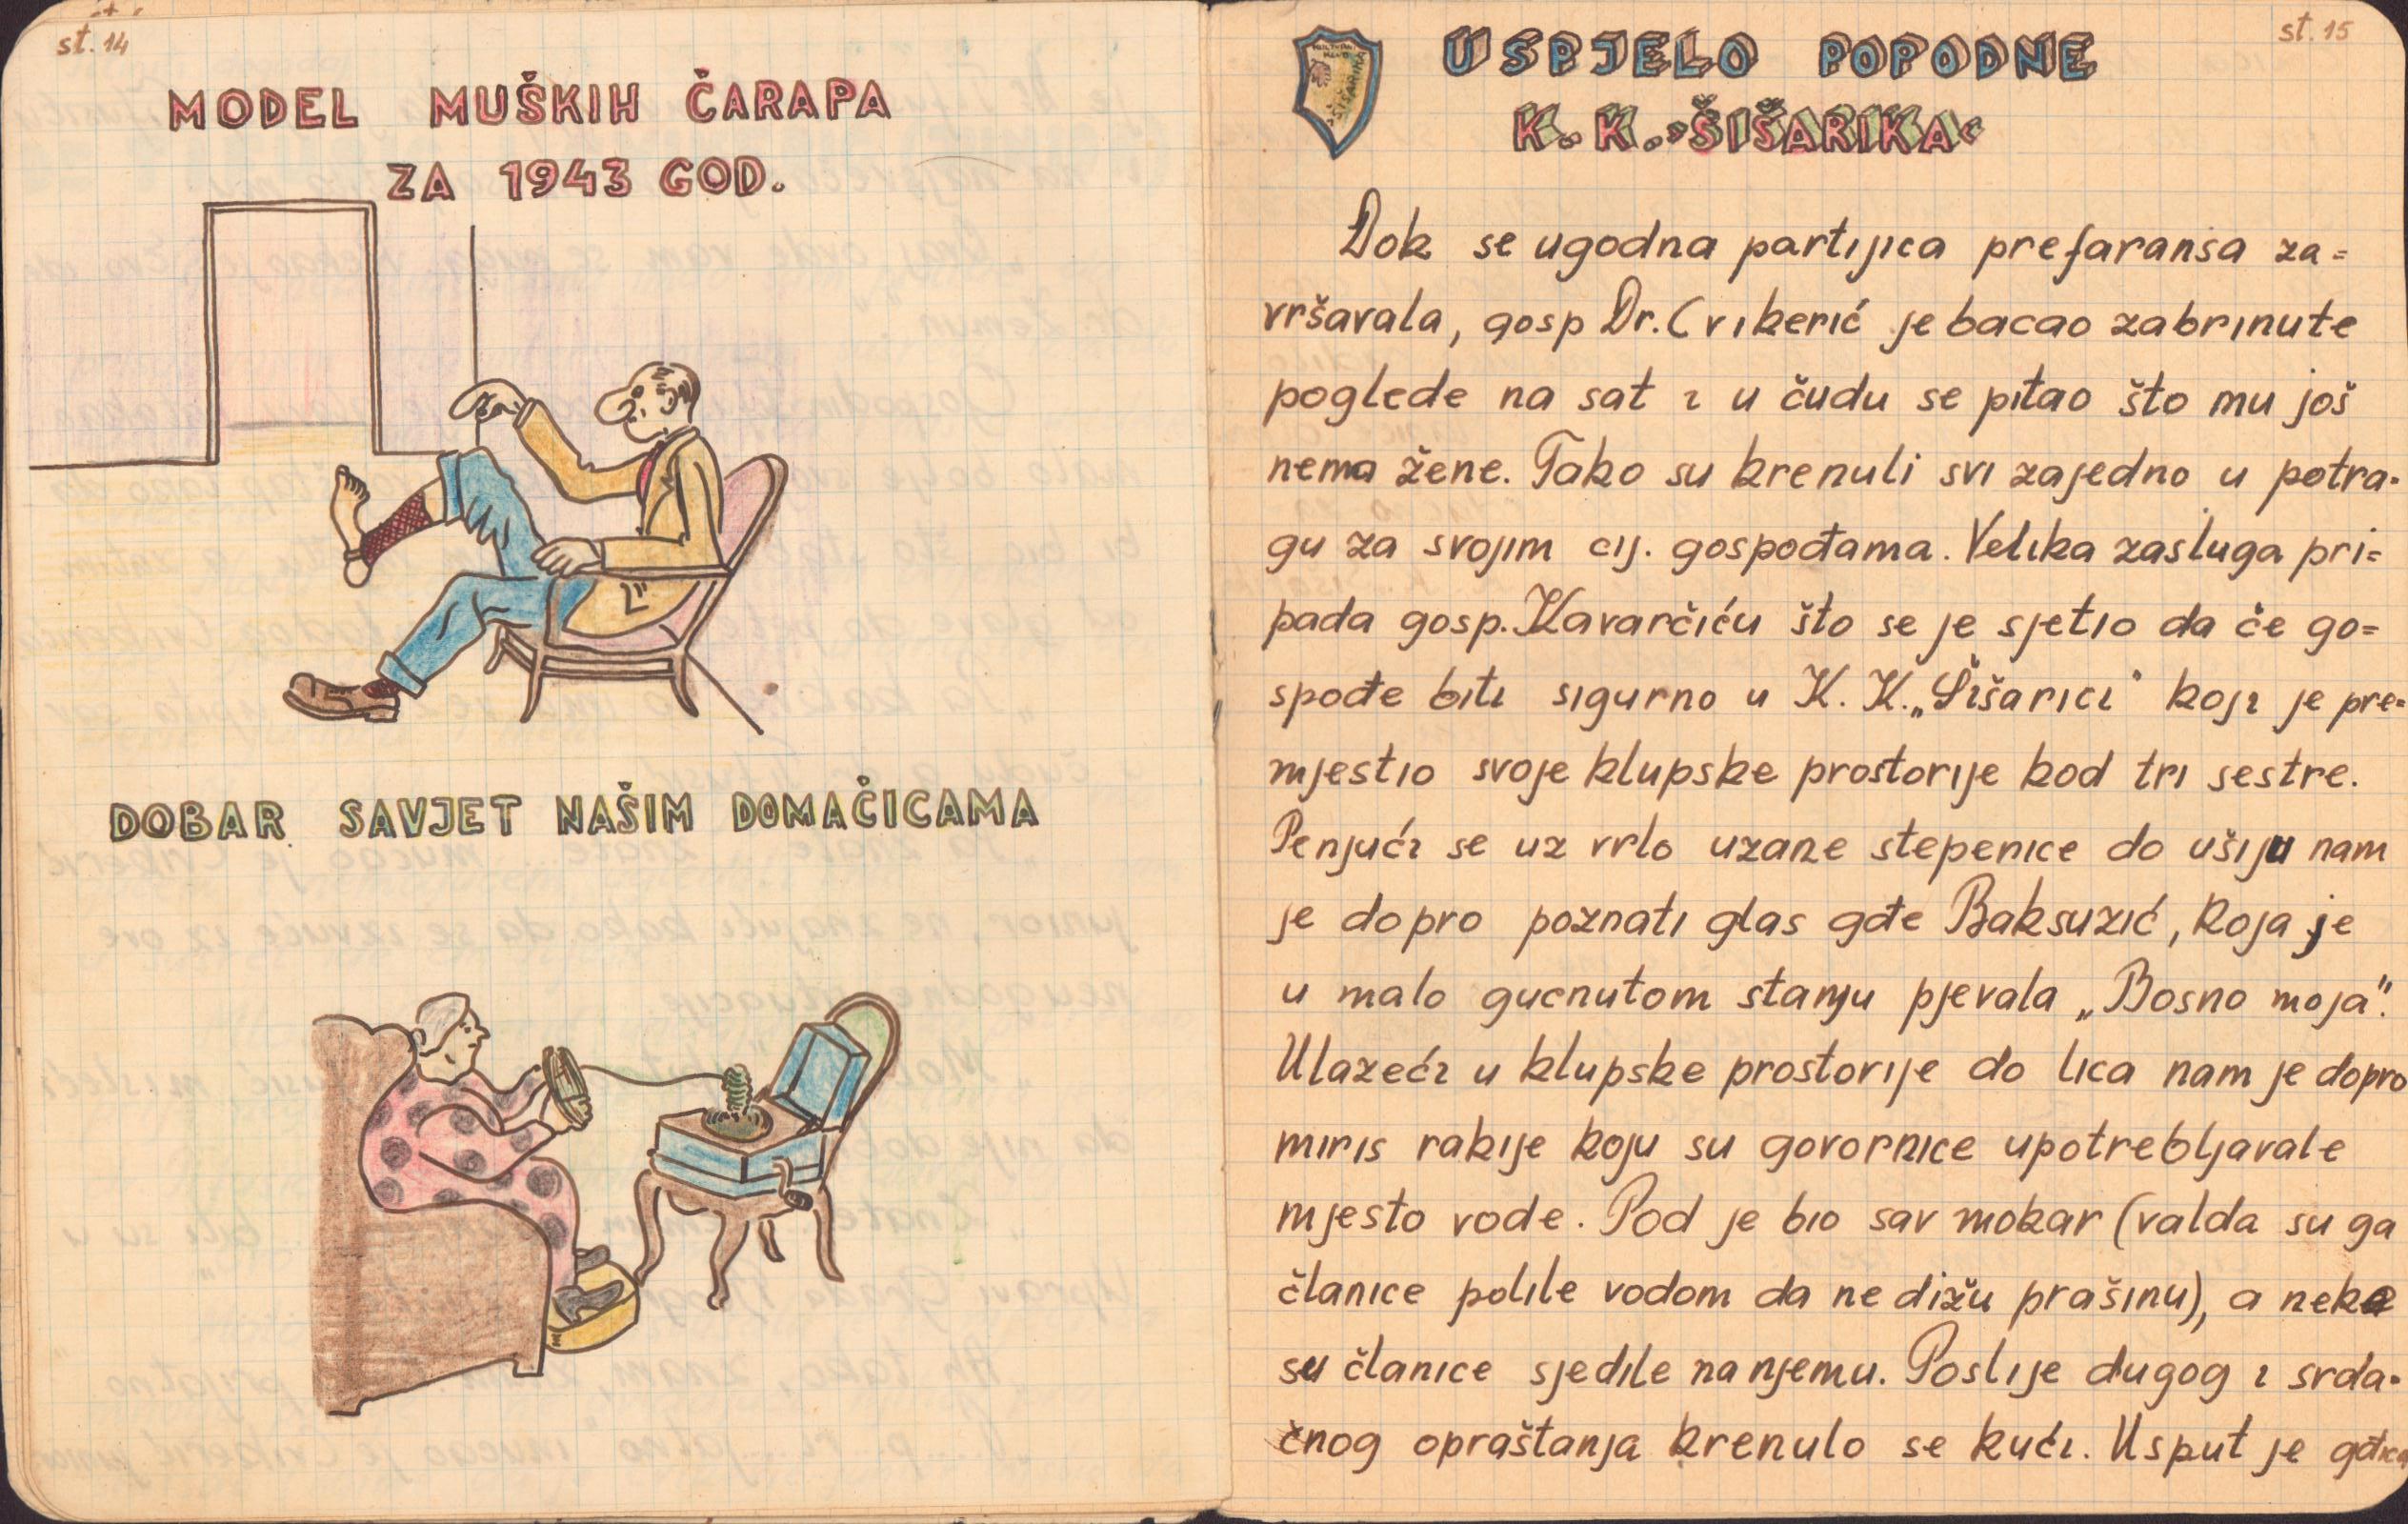 st. 14
MODEL MUŠKIH ČARAPA
ZA 1943 GOD.
DOBAR SAVJET NAŠIM DOMAČICAMA
st. 15
USPJELO POPODNE
K. K. »ŠIŠARIKA«
ŠIŠARIKA
Dok se ugodna partijica prefaransa za=
vršavala, gosp Dr. Cvikerić je bacao zabrinute
poglede na sat i u čudu se pitao što mu još
nema žene. Tako su krenuli svi zajedno u potra-
gu za svojim cij. gospođama. Velika zasluga pri=
pada gosp. Kavarčiću što se je sjetio da če go=
spođe biti sigurno u K. K. „Šišarici" koji je pre=
mjestio svoje klupske prostorije kod tri sestre.
Penjući se uz vrlo uzane stepenice do ušiju nam
je dopro poznati glas gđe Baksuzić, koja je
u malo gucnutom stanju pjevala „Bosno moja".
Ulazeći u klupske prostorije do lica nam je dopro
miris rakije koju su govornice upotrebljavale
mjesto vode. Pod je bio sav mokar (valda su ga
članice polile vodom da ne dižu prašinu), a neke
su članice sjedile na njemu. Poslije dugog i srda-
čnog opraštanja krenulo se kući. Usput je gđica